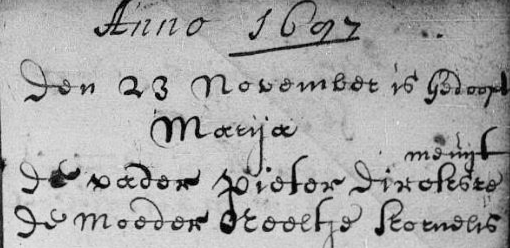 Anno 1697
Den 23 November is Gedoopt
Marija
de vader Pieter Dirckse
de Moeder Neeltje Kornelis